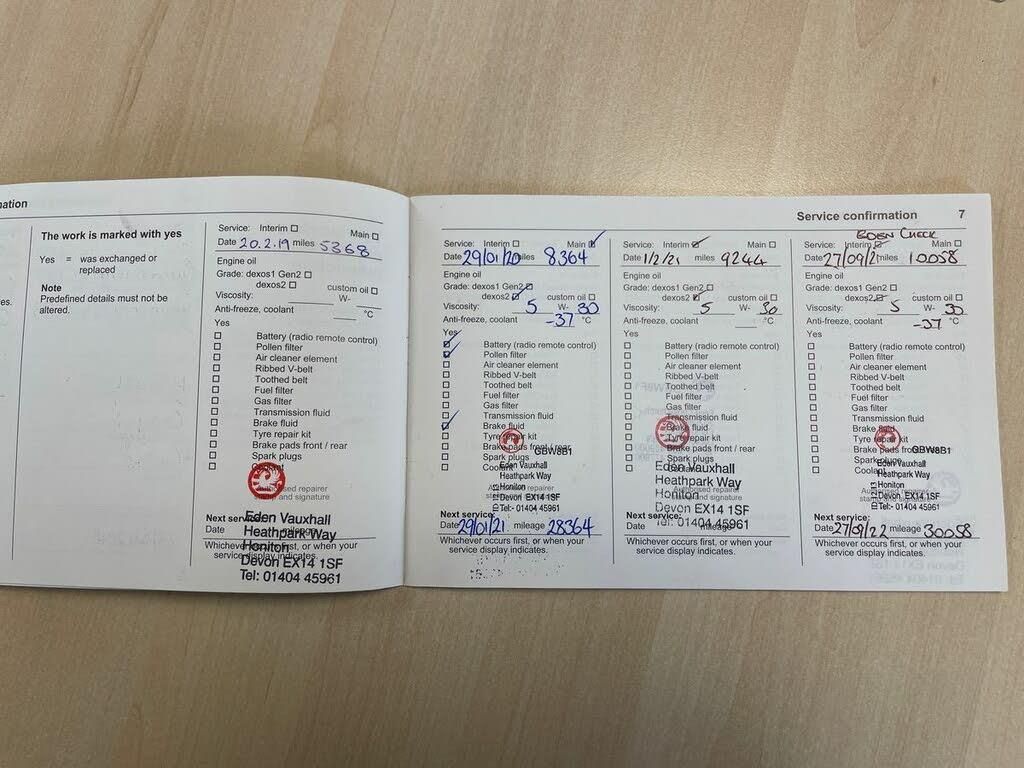 ation
The work is marked with yes
Yes = was exchanged or
replaced
Note
Predefined details must not be
altered.
es.
Service: Interim ☐ Main ☐
Date 20.2.19 miles 5368
Engine oil
Grade: dexos1 Gen2 ☐
dexos2 ☐ custom oil ☐
Viscosity: W-
Anti-freeze, coolant °C
Yes
☐ Battery (radio remote control)
☐ Pollen filter
☐ Air cleaner element
☐ Ribbed V-belt
☐ Toothed belt
☐ Fuel filter
☐ Gas filter
☐ Transmission fluid
☐ Brake fluid
☐ Tyre repair kit
☐ Brake pads front / rear
☐ Spark plugs
☐ Coolant
Authorised repairer
stamp and signature
Eden Vauxhall
Heathpark Way
Honiton
Devon EX14 1SF
Tel: 01404 45961
Next service:
Date mileage
Whichever occurs first, or when your
service display indicates.
Service confirmation 7
Service: Interim ☐ Main ☑
Date 29/01/20 miles 8364
Engine oil
Grade: dexos1 Gen2 ☑
dexos2 ☑ custom oil ☐
Viscosity: 5 W- 30
Anti-freeze, coolant -37 °C
Yes
☑ Battery (radio remote control)
☑ Pollen filter
☐ Air cleaner element
☐ Ribbed V-belt
☐ Toothed belt
☐ Fuel filter
☐ Gas filter
☐ Transmission fluid
☑ Brake fluid
☐ Tyre repair kit
☐ Brake pads front / rear
☐ Spark plugs
☐ Coolant
GBW8B1
Eden Vauxhall
Heathpark Way
Honiton
Devon EX14 1SF
Tel:- 01404 45961
Next service:
Date 29/01/21 mileage 28364
Whichever occurs first, or when your
service display indicates.
Service: Interim ☑ Main ☐
Date 1/2/21 miles 9244
Engine oil
Grade: dexos1 Gen2 ☐
dexos2 ☑ custom oil ☐
Viscosity: 5 W- 30
Anti-freeze, coolant °C
Yes
☐ Battery (radio remote control)
☐ Pollen filter
☐ Air cleaner element
☐ Ribbed V-belt
☐ Toothed belt
☐ Fuel filter
☐ Gas filter
☐ Transmission fluid
☐ Brake fluid
☐ Tyre repair kit
☐ Brake pads front / rear
☐ Spark plugs
☐ Coolant
Authorised repairer
stamp and signature
Eden Vauxhall
Heathpark Way
Honiton
Devon EX14 1SF
Tel: 01404 45961
Next service:
Date mileage
Whichever occurs first, or when your
service display indicates.
EDEN CHECK
Service: Interim ☑ Main ☐
Date 27/09/21 miles 10058
Engine oil
Grade: dexos1 Gen2 ☐
dexos2 ☑ custom oil ☐
Viscosity: 5 W- 30
Anti-freeze, coolant -37 °C
Yes
☐ Battery (radio remote control)
☐ Pollen filter
☐ Air cleaner element
☐ Ribbed V-belt
☐ Toothed belt
☐ Fuel filter
☐ Gas filter
☐ Transmission fluid
☐ Brake fluid
☐ Tyre repair kit
☐ Brake pads front / rear
☐ Spark plugs
☐ Coolant
GBW8B1
Eden Vauxhall
Heathpark Way
Honiton
Devon EX14 1SF
Tel:- 01404 45961
Next service:
Date 27/09/22 mileage 30058
Whichever occurs first, or when your
service display indicates.